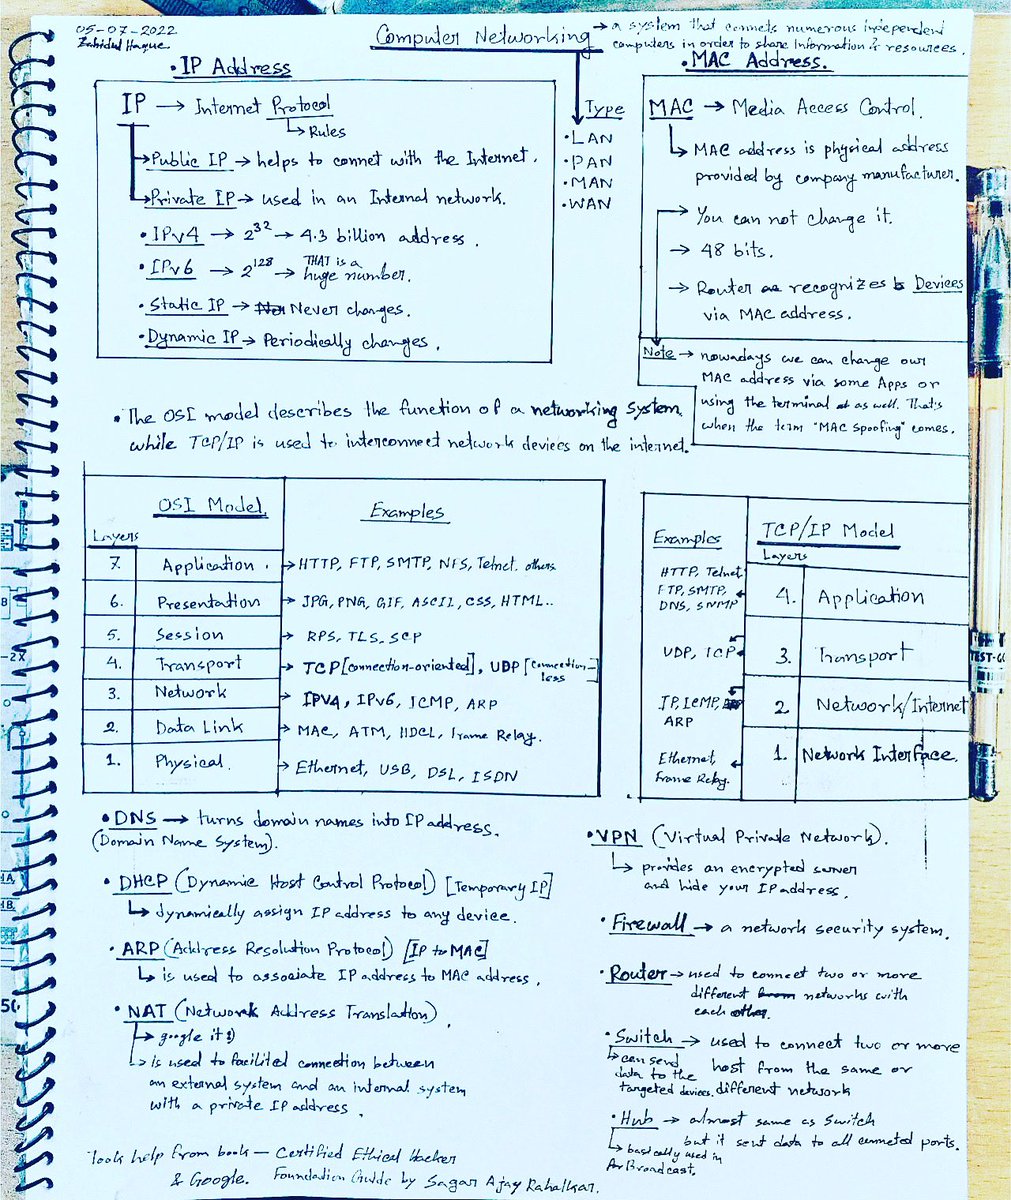 05-07-2022
Zahidul Haque
Computer Networking → a system that connets numerous independent
computers in order to share Information & resources.
• IP Address
IP → Internet Protocol
↳ Rules
→ Public IP → helps to connet with the Internet.
→ Private IP → used in an Internal network.
• IPv4 → 2^32 → 4.3 billion address.
• IPv6 → 2^128 → THAT is a
huge number.
• Static IP → Never changes.
• Dynamic IP → Periodically changes.
Type
• LAN
• PAN
• MAN
• WAN
• MAC Address.
MAC → Media Access Control.
↳ MAC address is physical address
provided by company manufacturer.
→ You can not change it.
→ 48 bits.
→ Router recognizes Devices
via MAC address.
Note → nowadays we can change our
MAC address via some Apps or
using the terminal as well. That's
when the term "MAC spoofing" comes.
• The OSI model describes the function of a networking system,
while TCP/IP is used to interconnect network devices on the internet.
OSI Model Examples
Layers
7. Application. → HTTP, FTP, SMTP, NFS, Telnet. others.
6. Presentation → JPG, PNG, GIF, ASCII, CSS, HTML..
5. Session → RPS, TLS, SCP
4. Transport → TCP [connection-oriented], UDP [connection-
less
3. Network → IPV4, IPv6, ICMP, ARP
2. Data Link → MAC, ATM, HDCL, frame Relay.
1. Physical. → Ethernet, USB, DSL, ISDN
Examples TCP/IP Model
Layers
HTTP, Telnet
FTP, SMTP,
DNS, SNMP
4. Application
UDP, TCP 3. Transport
IP, ICMP,
ARP
2. Network/Internet
Ethernet,
Frame Relay.
1. Network Interface.
• DNS → turns domain names into IP address.
(Domain Name System).
• DHCP (Dynamic Host Control Protocol) [Temporary IP]
↳ dynamically assign IP address to any device.
• ARP (Address Resolution Protocol) [IP to MAC]
↳ is used to associate IP address to MAC address.
• NAT (Network Address Translation).
↳ google it :)
↳ is used to facilited connection between
an external system and an internal system
with a private IP address.
• VPN (Virtual Private Network).
↳ provides an encrypted server
and hide your IP address.
• Firewall → a network security system.
• Router → used to connect two or more
different networks with
each other.
• Switch → used to connect two or more
host from the same or
different network
↳ can send
data to the
targeted devices.
• Hub → almost same as Switch
but it sent data to all conneted ports.
↳ basically used in
for Broadcast.
Took help from book — Certified Ethical Hacker
& Google. Foundation Guide by Sagar Ajay Rahalkar.
TEST-